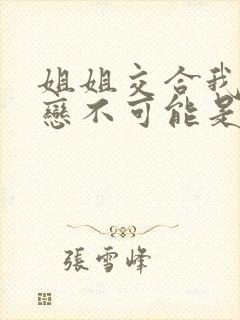 姐姐交合我
戀不可能是
張雪峰